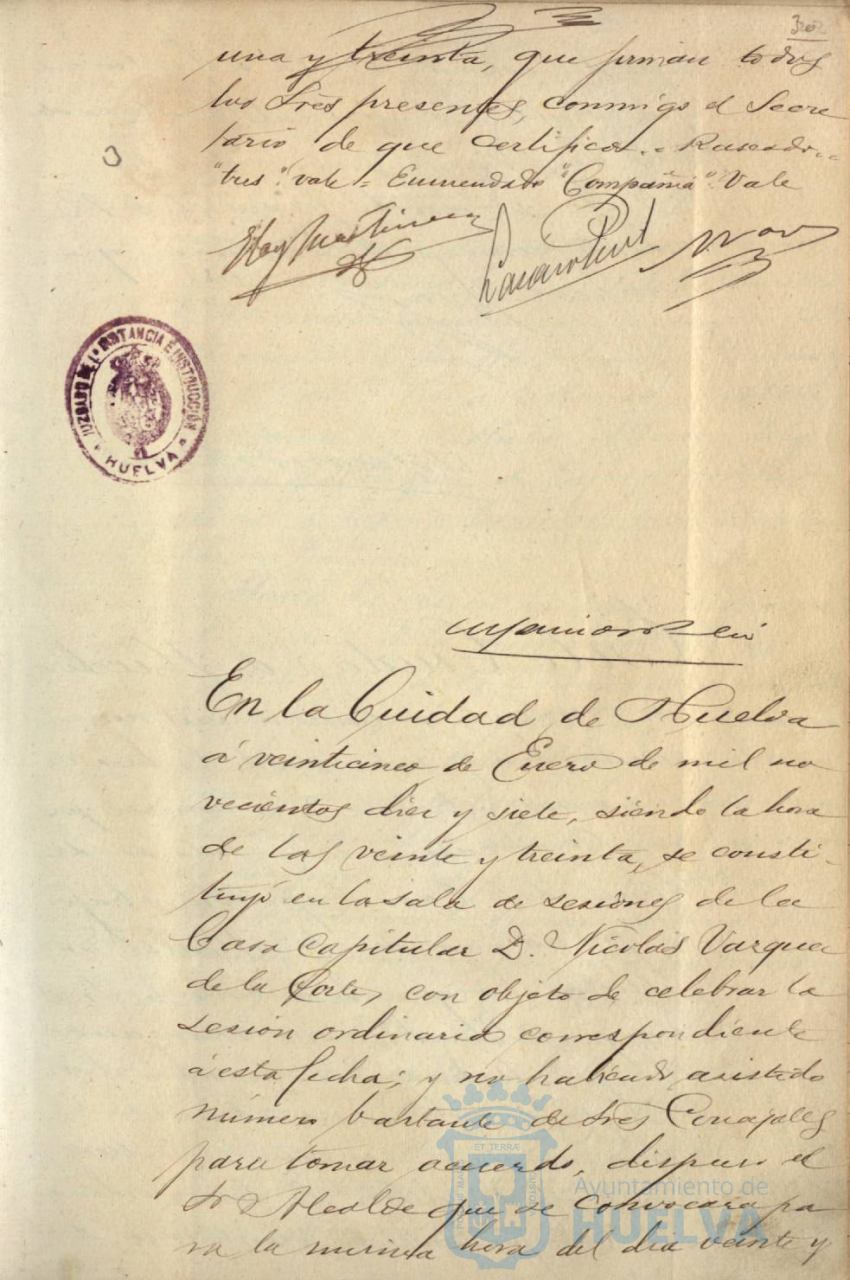 302
una y treinta, que firman todos
los Sres presentes, conmigo el Secre
tario de que certifico.= Raspado=
"tres": vale = Enmendado "Compañia": Vale
Eloy Martinez
JUZGADO DE 1ª INSTANCIA E INSTRUCCIÓN
HUELVA
En la Ciudad de Huelva
á veinticinco de Enero de mil no
vecientos diez y siete, siendo la hora
de las veinte y treinta, se consti-
tuyó en la sala de sesiones de la
Casa Capitular D. Nicolás Vazquez
de la Corte, con objeto de celebrar la
sesión ordinaria correspondiente
á esta fecha; y no habiendo asistido
número bastante de Sres Concejales
para tomar acuerdo, dispuso el
Sr Alcalde que se convocara pa
ra la misma hora del dia veinte y
Ayuntamiento de
HUELVA